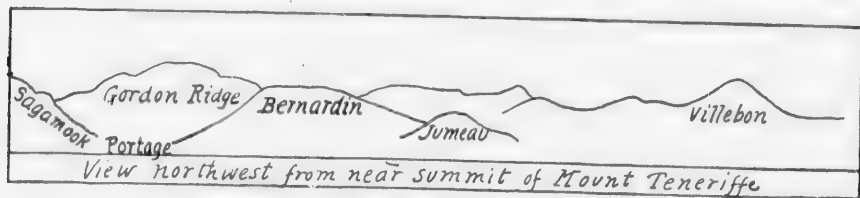 Sagamook
Gordon Ridge
Bernardin
Portage
Jumeau
Villebon
View northwest from near summit of Mount Teneriffe